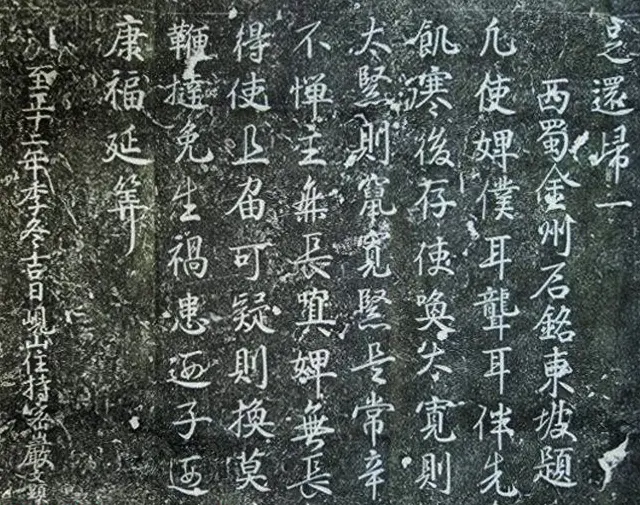 是還歸一
西蜀金州石銘東坡題
凢使婢僕耳聾耳伴先
飢寒後存使喚太寛則
太緊則竄寛緊是常辛
不憚主無長婢無長
得使且留可疑則換莫
鞭撻免生禍患子
康福延筭
至正十二年季冬吉日峴山住持嚴題